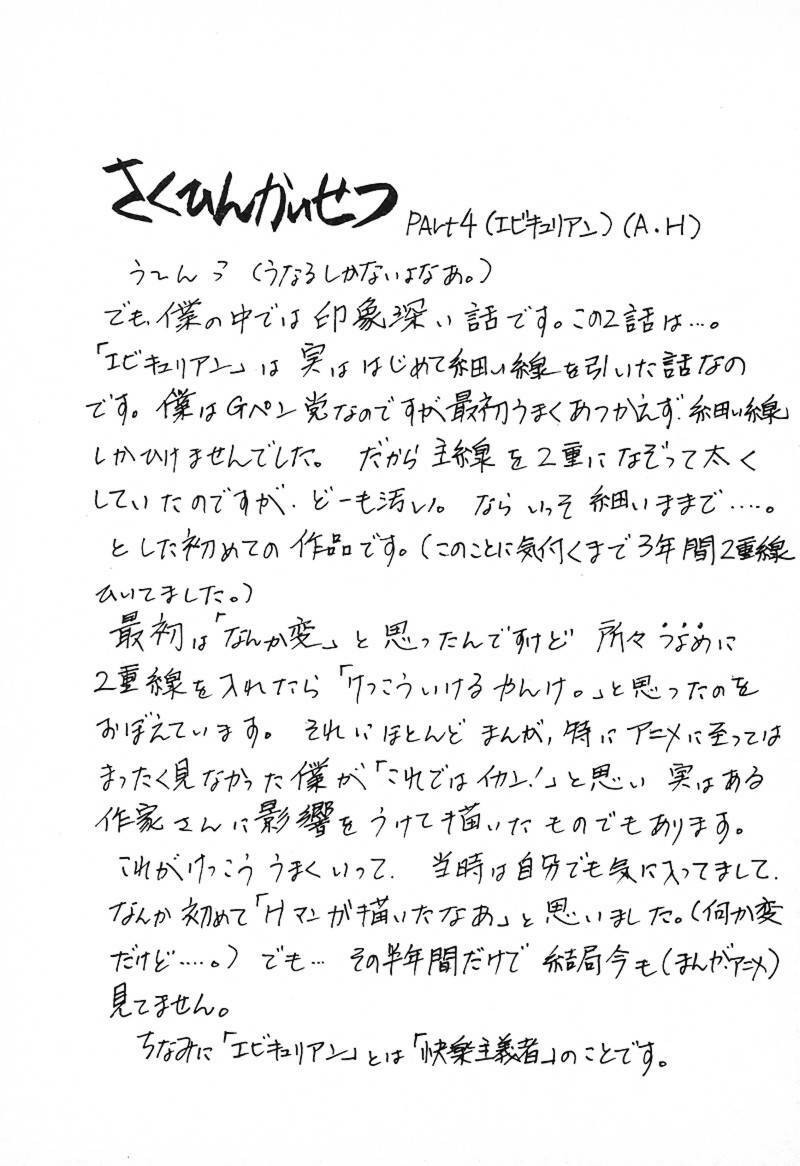 さくひんかいせつ PArt4(エピキュリアン)(A.H)
う〜んっ(うなるしかないよなぁ。)
でも、僕の中では印象深い話です。この2話は…。
「エピキュリアン」は実ははじめて細い線を引いた話なの
です。僕はGペン党なのですが最初うまくあつかえず、細い線
しかひけませんでした。だから主線を2重になぞって太く
していたのですが、どーも汚い。ならいっそ細いままで‥‥。
とした初めての作品です。(このことに気付くまで3年間2重線
ひいてました。)
最初は「なんか変」と思ったんですけど所々うなめに
2重線を入れたら「けっこういけるやんけ。」と思ったのを
おぼえています。それにほとんどまんが,特にアニメに至っては
まったく見なかった僕が「これではイカン!」と思い実はある
作家さんに影響をうけて描いたものでもあります。
これがけっこううまくいって、当時は自分でも気に入ってまして、
なんか初めて「Hマンガ描いたなあ」と思いました。(何か変
だけど‥‥。)でも…その半年間だけで結局今も(まんが・アニメ)
見てません。
ちなみに「エピキュリアン」とは「快楽主義者」のことです。